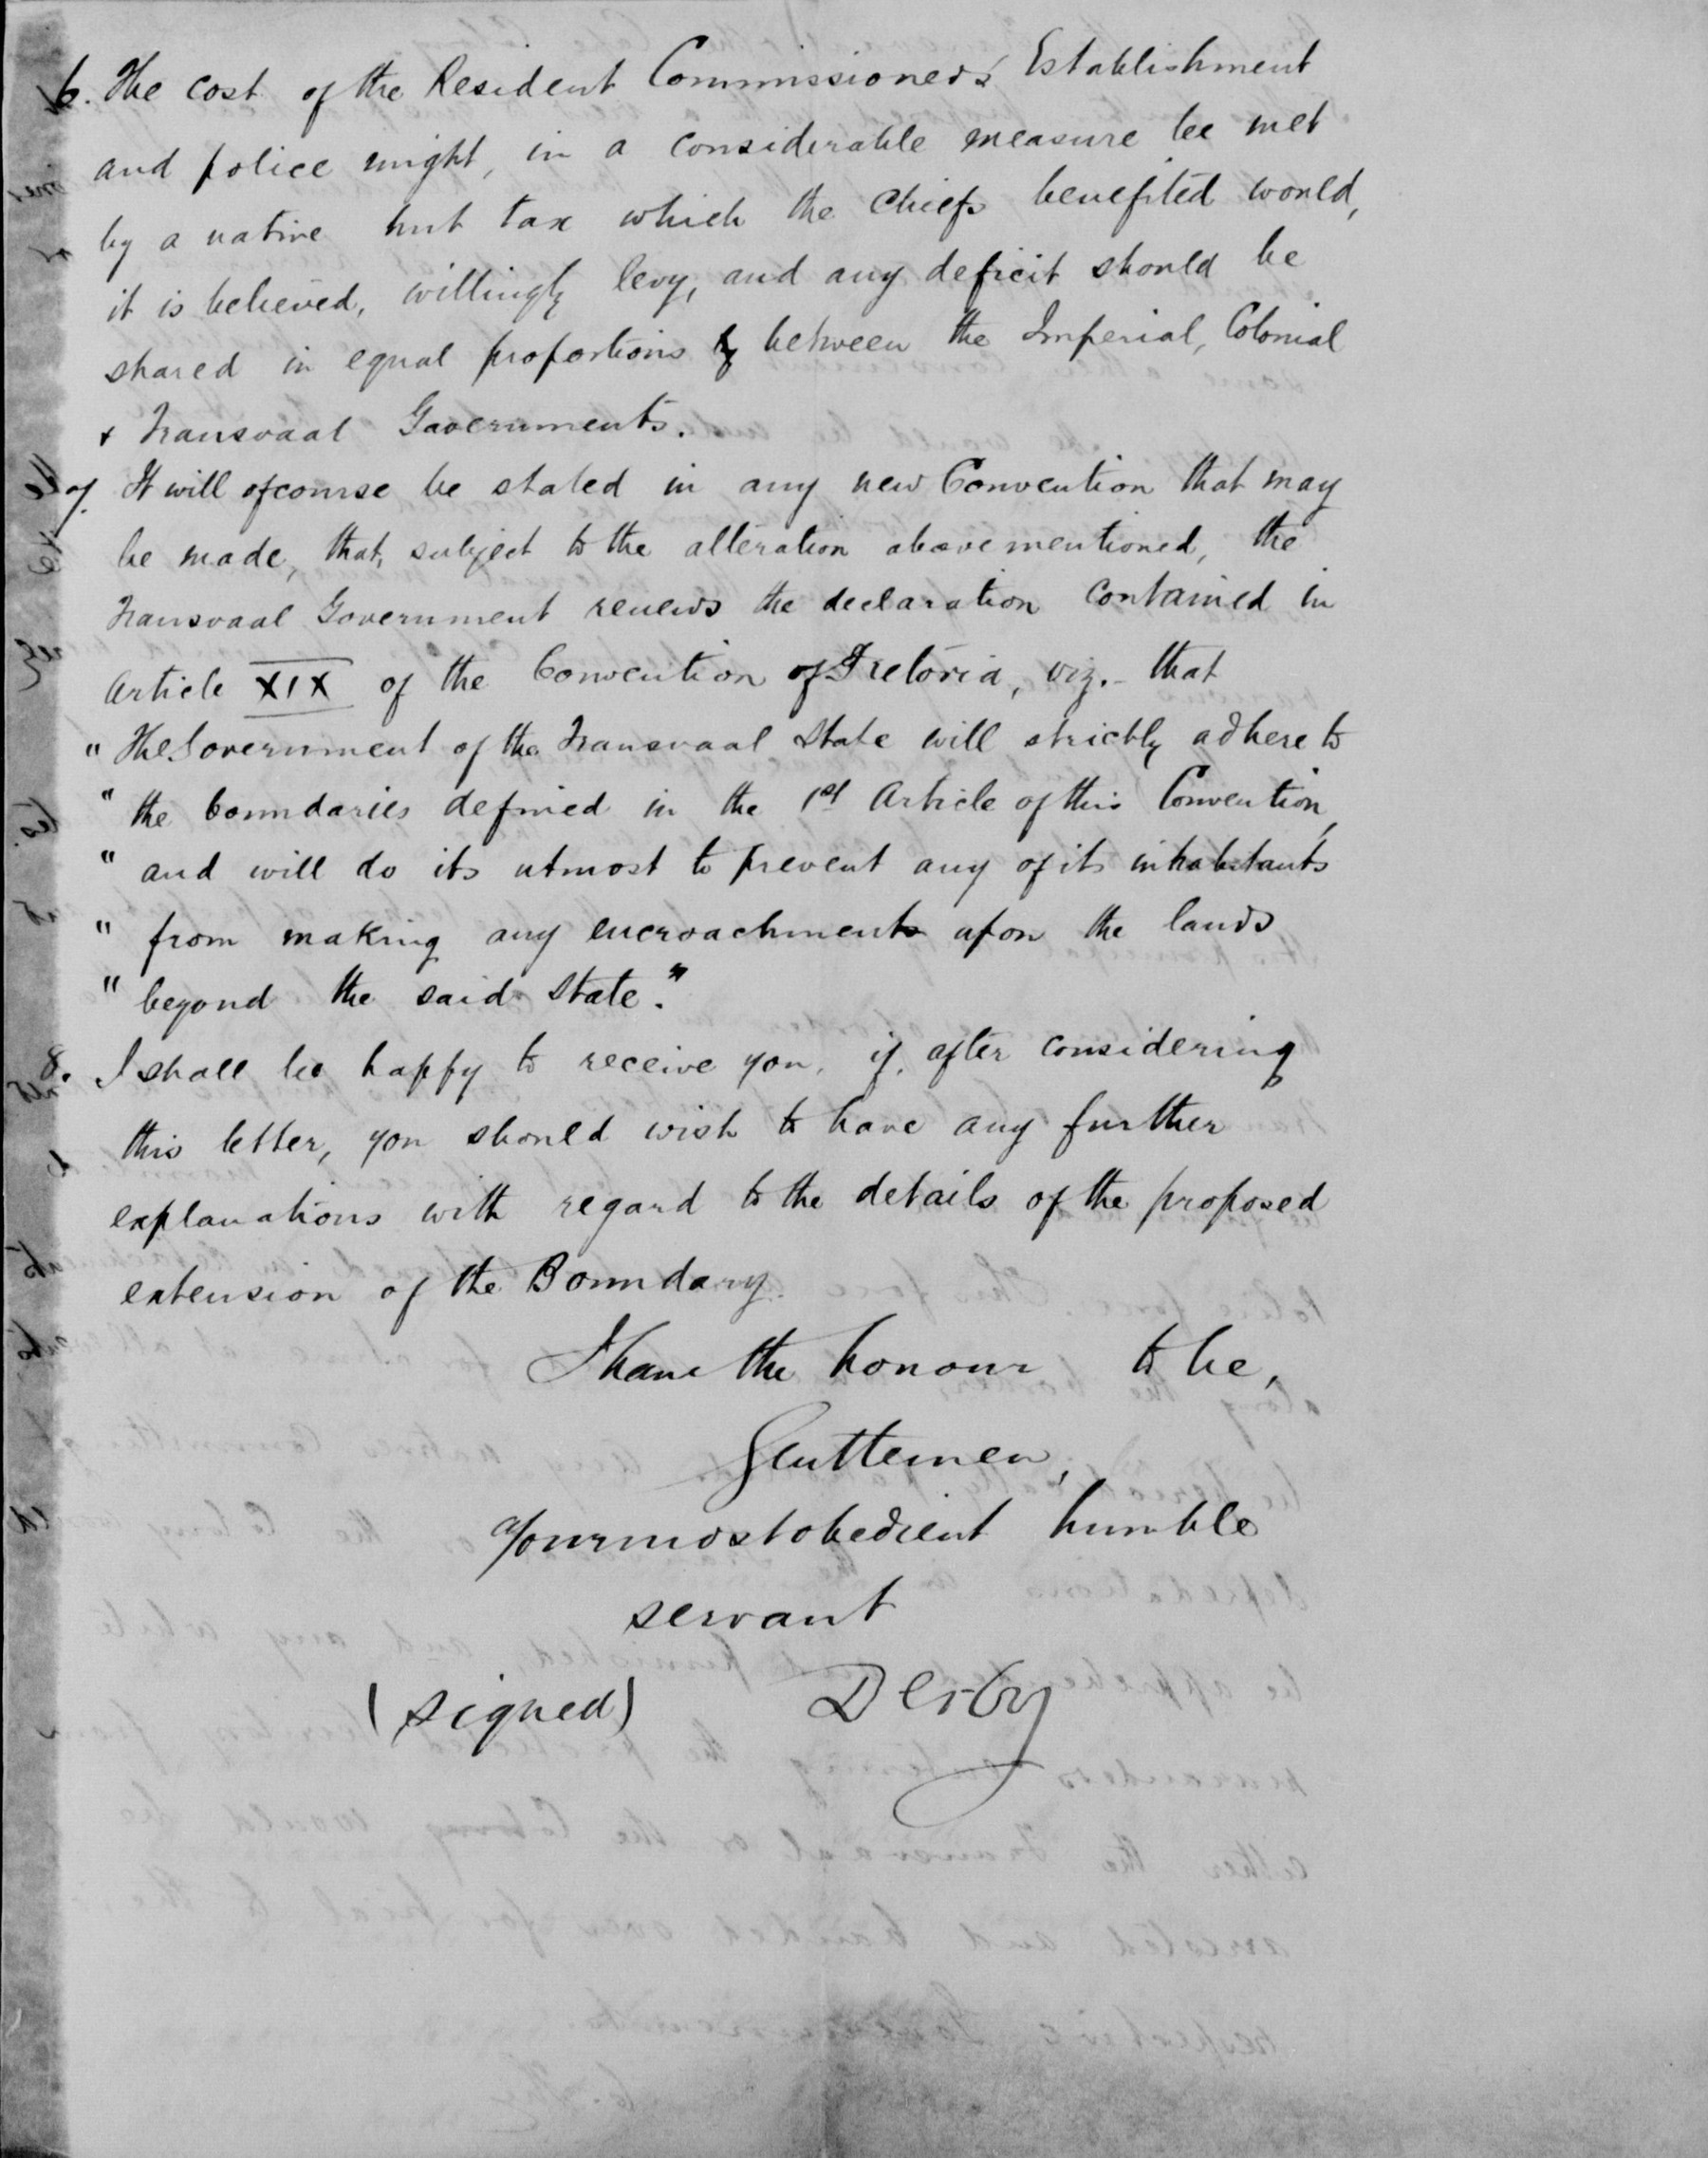 6. The cost of the Resident Commissioners' Establishment
and police might, in a considerable measure be met
by a native hut tax which the Chiefs benefited would,
it is believed, willingly levy, and any deficit should be
shared in equal proportions by between the Imperial, Colonial
& Transvaal Governments.
7. It will of course be stated in any new Convention that may
be made, that, subject to the alteration above mentioned, the
Transvaal Government renews the declaration contained in
Article XIX of the Convention of Pretoria, viz. - that
" The Government of the Transvaal State will strictly adhere to
" the boundaries defined in the 1st Article of this Convention,
" and will do its utmost to prevent any of its inhabitants
" from making any encroachments upon the lands
" beyond the said State."
8. I shall be happy to receive you, if, after considering
this letter, you should wish to have any further
explanations with regard to the details of the proposed
extension of the Boundary.
I have the honour to be,
Gentlemen,
Your most obedient humble
servant
(signed) Derby